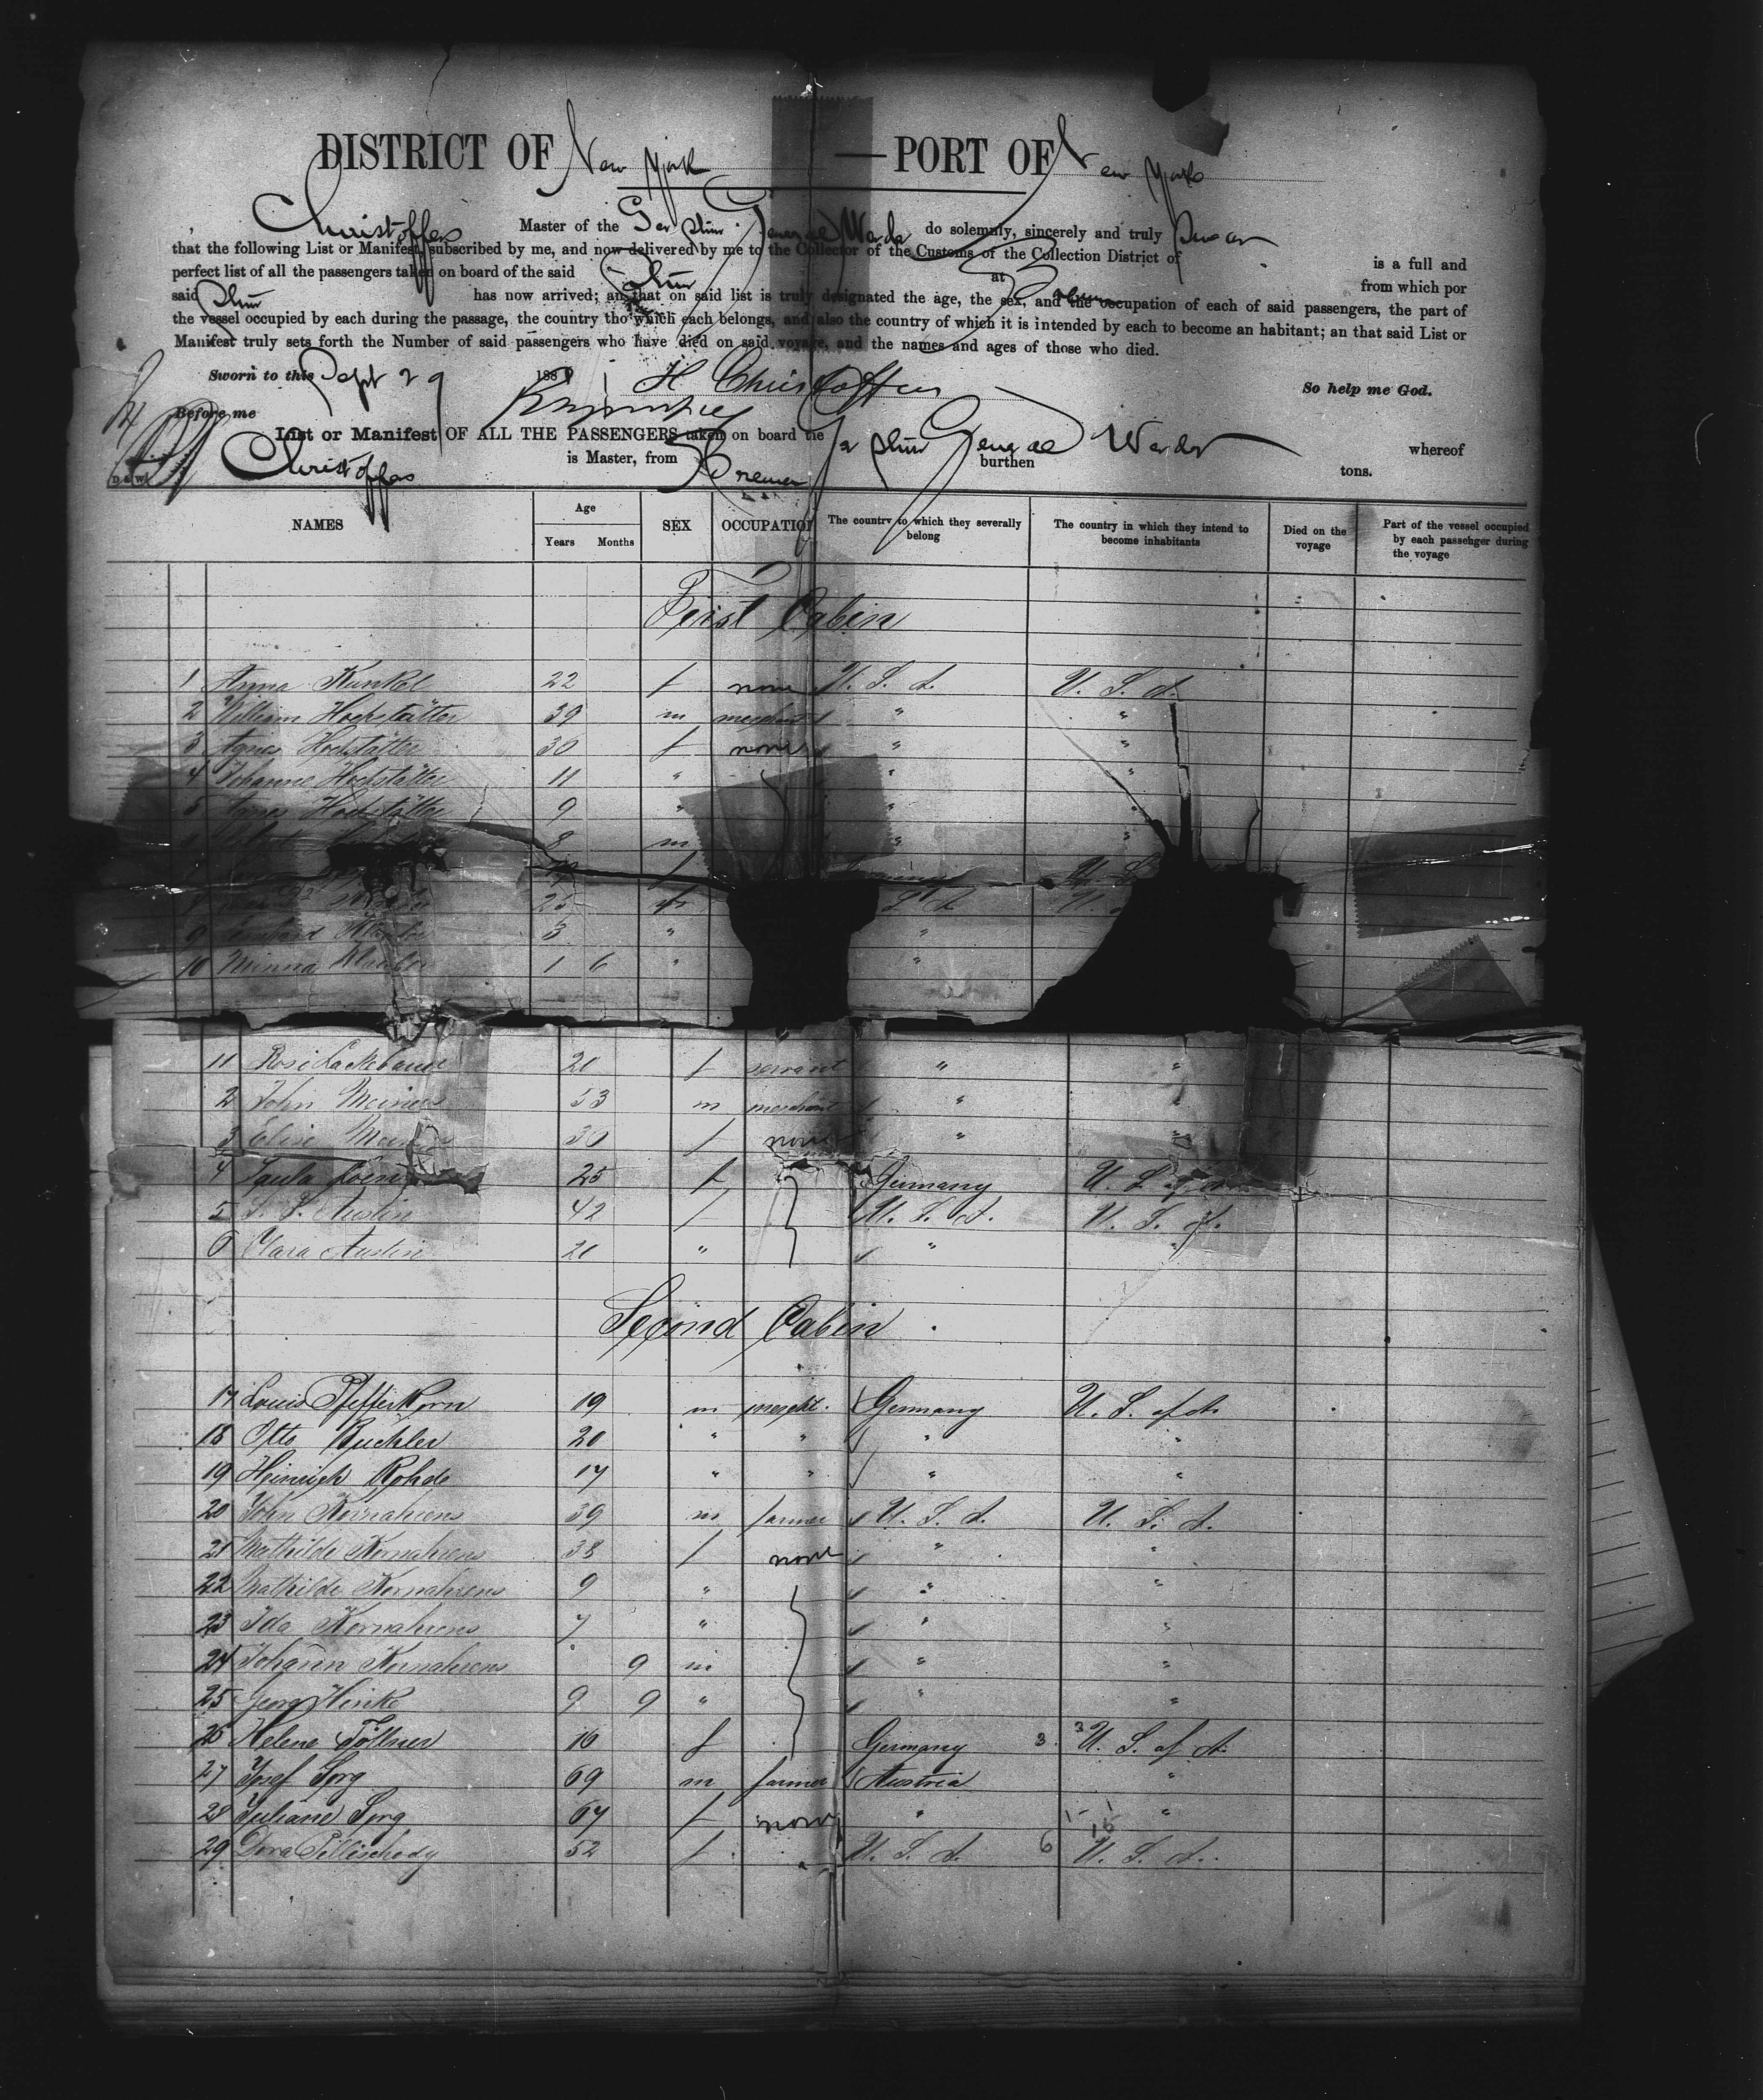 DISTRICT OF New York — PORT OF New York
Christoffers Master of the Ger Stmr General Werder do solemnly, sincerely and truly Swear
that the following List or Manifest, subscribed by me, and now delivered by me to the Collector of the Customs of the Collection District of is a full and
perfect list of all the passengers taken on board of the said Stmr at from which por
said Stmr has now arrived; an that on said list is truly designated the age, the sex, and the occupation of each of said passengers, the part of
the vessel occupied by each during the passage, the country tho which each belongs, and also the country of which it is intended by each to become an habitant; an that said List or
Manifest truly sets forth the Number of said passengers who have died on said voyage, and the names and ages of those who died.
Sworn to this Sept 29 188 H Christoffers So help me God.
Before me
List or Manifest OF ALL THE PASSENGERS taken on board the Ger Stmr General Werder whereof
Christoffers is Master, from Bremen burthen tons.
D & W
NAMES Age Years Months SEX OCCUPATION The country to which they severally belong The country in which they intend to become inhabitants Died on the voyage Part of the vessel occupied by each passenger during the voyage
First Cabin
1 Anna Kunkel 22 f none U. S. A. U. S. A.
2 William Hochstätter 39 m merchant " "
3 Agnes Hochstätter 30 f none " "
4 Johanne Hochstätter 11 " " "
5 Agnes Hochstätter 9 " " "
6 8 m " "
f U. S.
25 f
9 3 " "
10 Minna 1 6 " "
11 Rosi 21 f servant " "
2 John Meiners 53 m merchant " "
3 Elise 30 f none " "
4 Paula 25 f Germany U. S. of A.
5 Austin 42 f U. S. A. U. S. A.
6 Clara Austin 21 " " "
Second Cabin
17 Louis Pfefferkorn 19 m mercht. Germany U. S. of A.
18 Otto Büchler 20 " " " "
19 Heinrich Rohde 17 " " " "
20 John Kornahrens 39 m farmer U. S. A. U. S. A.
21 Mathilde Kornahrens 38 f none " "
22 Mathilde Kornahrens 9 " " "
23 Ida Kornahrens 7 " " "
24 Johann Kornahrens 9 m " "
25 Georg Hinke 9 9 " " "
26 Helene Töllner 16 f Germany 3 3 U. S. of A.
27 Josef Sorg 69 m farmer Austria "
28 Juliane Sorg 67 f none " "
29 Dora 52 f U. S. A. 6 U. S. A.